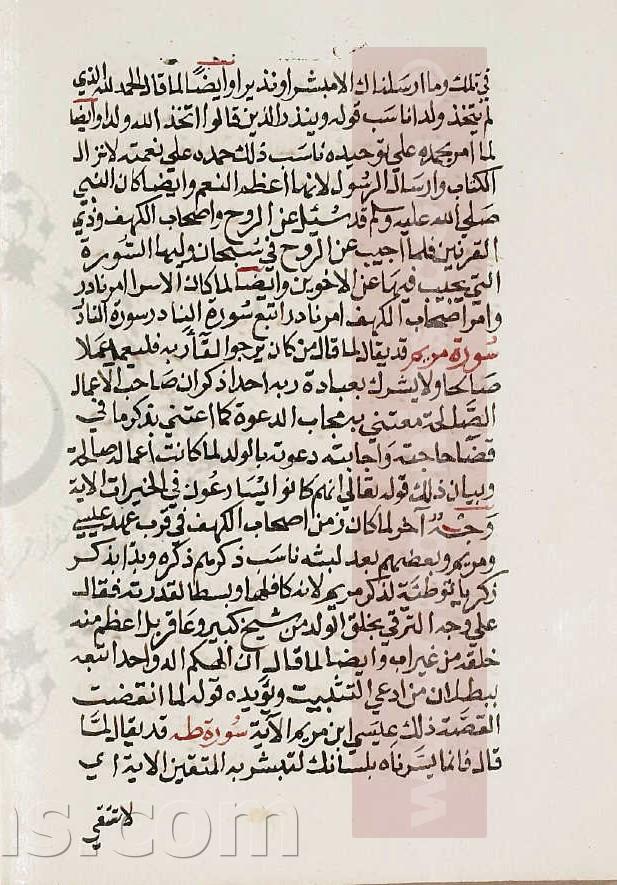 في تلك وما ارسلناك الا مبشرا ونذيرا وايضًا لما قال الحمد لله الذي
لم يتخذ ولدا ناسب قوله وينذر الذين قالوا اتخذ الله ولدا وايضا
لما امر بحمده علي توحيده ناسب ذلك حمده علي نعمته لانزال
الكتاب وارسال الرسول لانها اعظم النعم وايضا كان النبي
صلي الله عليه وسلم قد سُئِل عن الروح واصحاب الكهف وذي
القرنين فلما اجيب عن الروح في سُبحان وليها السُّورة
التي يجيب فيها عن الاخوين وايضًا لما كان الاسرا امر نادر
وامر اصحاب الكهف امر نادر اتبع سُورة النادر سورة النادر
سُورة مريم قد يقال لما قال من كان يرجوا لقآ ربه فليعمل عملا
صَالحا ولا يشرك بعبادة ربه احدا ذكر ان صَاحب الاعمال
الصَّالحة معتني به مجاب الدعوة كما اعتني بذكر ما في
قضا حاجته وَاجابته دعوته بالولد لما كانت اعماله صالحة
وبيان ذلك قوله تعالي انهم كانوا يُسارعُون في الخيرات الاية
وَجْهٌ آخر لما كان زمن اصحاب الكهف في قرب عهد عيسي
ومريم وبعضهم بعد لبثه ناسب ذكر مريم ذكره وبدا بذكر
زكريا توطئة لذكر مريم لانه كافلها وبسطا لقدرته فقال
علي وجه الترقي بخلق الولد من شيخ كبير وعاقر بل اعظم منه
خلقه من غير اب وايضا لما قال ان الهكم اله واحد اتبعه
ببطلان من ادعي التثليث ويؤيده قوله لما انقضت
القصَّة ذلك عيسَي ابن مريم الاية سُورة طه قد يقال لمَّا
قال فانما يسَّرناه بلسَانك لتبشر به المتقين الاية اي
لا تشقي
ns.com